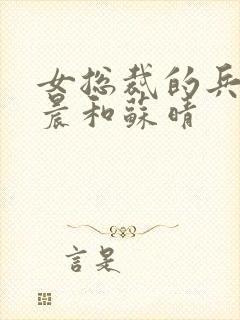 女总裁的兵
晨和蘇晴
言是